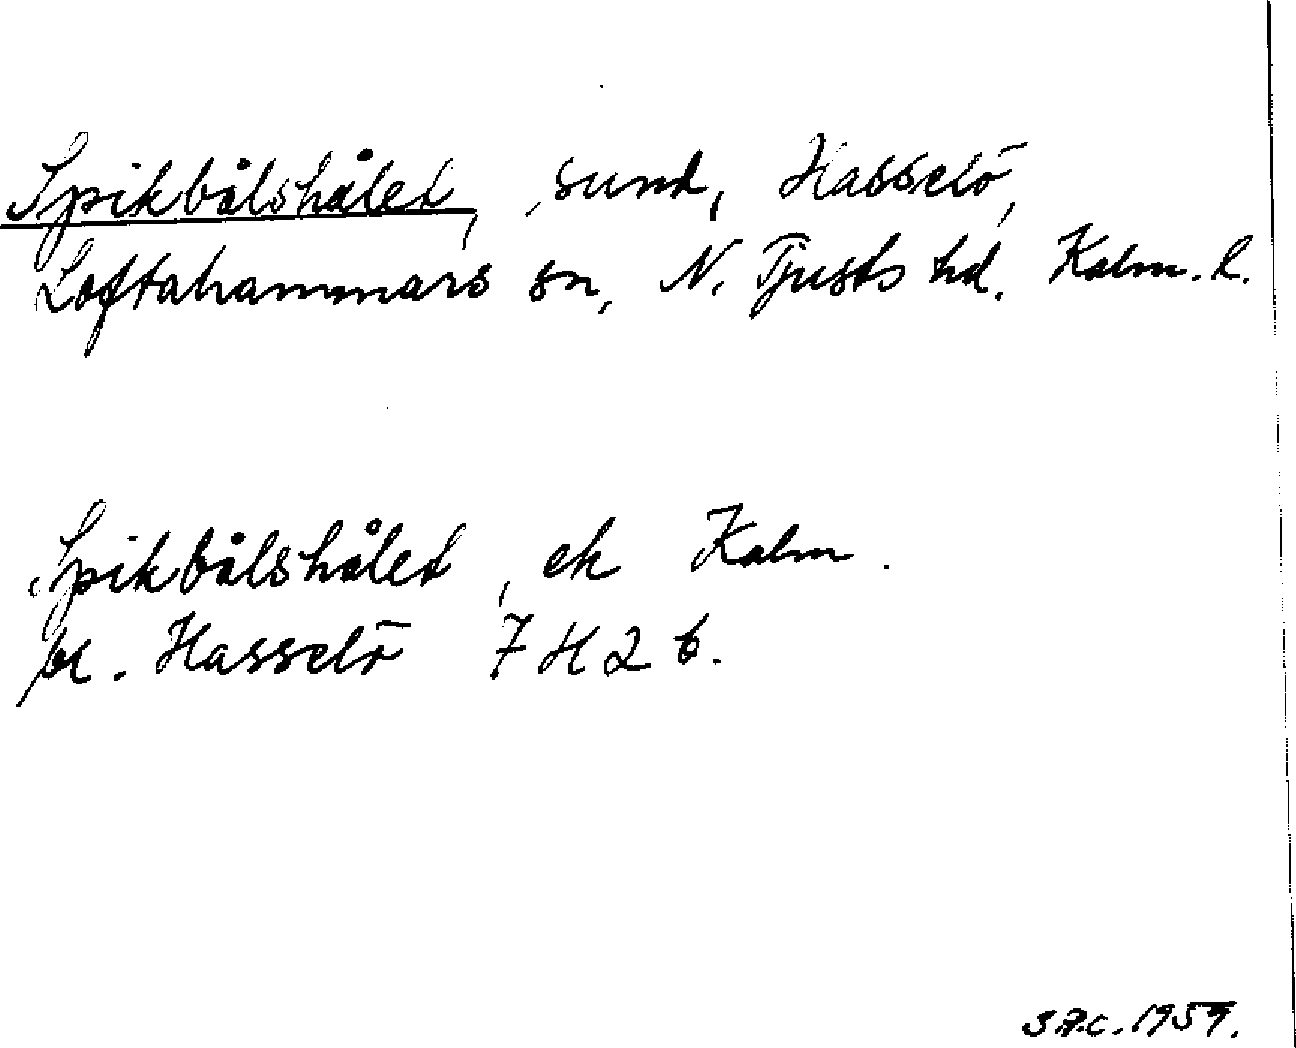 Spikbålshålet, sund, Hasselö,
Loftahammars sn, N. Tjusts hd. Kalm. l.
Spikbålshålet, ek Kalm.
bl. Hasselö 7 H 2 b.
S.A.C. 1959.